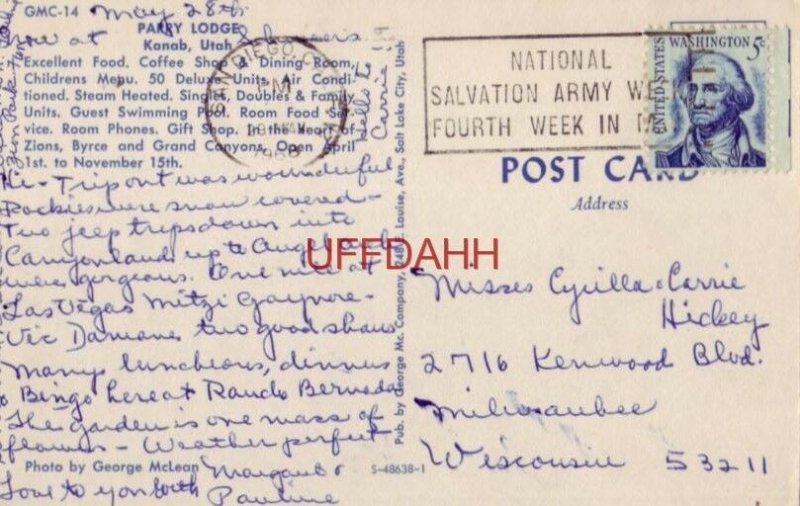 GMC-14
May 28th
PARRY LODGE
Kanab, Utah
Excellent Food. Coffee Shop & Dining Room,
Childrens Menu. 50 Deluxe Units. Air Condi-
tioned. Steam Heated. Singles, Doubles & Family
Units. Guest Swimming Pool. Room Food Ser-
vice. Room Phones. Gift Shop. In the Heart of
Zions, Byrce and Grand Canyons. Open April
1st. to November 15th.
Hello to Carrie
Hi - Trip out was wounderful
Rockies were snow covered -
Two jeep trips down into
Canyonlands up to Angel Arch
were gorgeous. One nite at
Las Vegas Mitzi Gaynore -
Vic Damone, two good shows
Many luncheons, dinners
& Bingo here at Rancho Bernado
The garden is one mass of
flowers - Weather perfect
Photo by George McLean
Margaret &
Love to you both
Pauline
S-48638-1
Pub. by George Mc. Company, 248 E. Louise, Ave., Salt Lake City, Utah
SAN DIEGO
PM
1966
NATIONAL
SALVATION ARMY WEEK
FOURTH WEEK IN MAY
UNITED STATES
WASHINGTON 5c
POST CARD
Address
UFFDAHH
Misses Cyrilla & Carrie
Hickey
2716 Kenwood Blvd.
Milwaukee
Wisconsin 53211